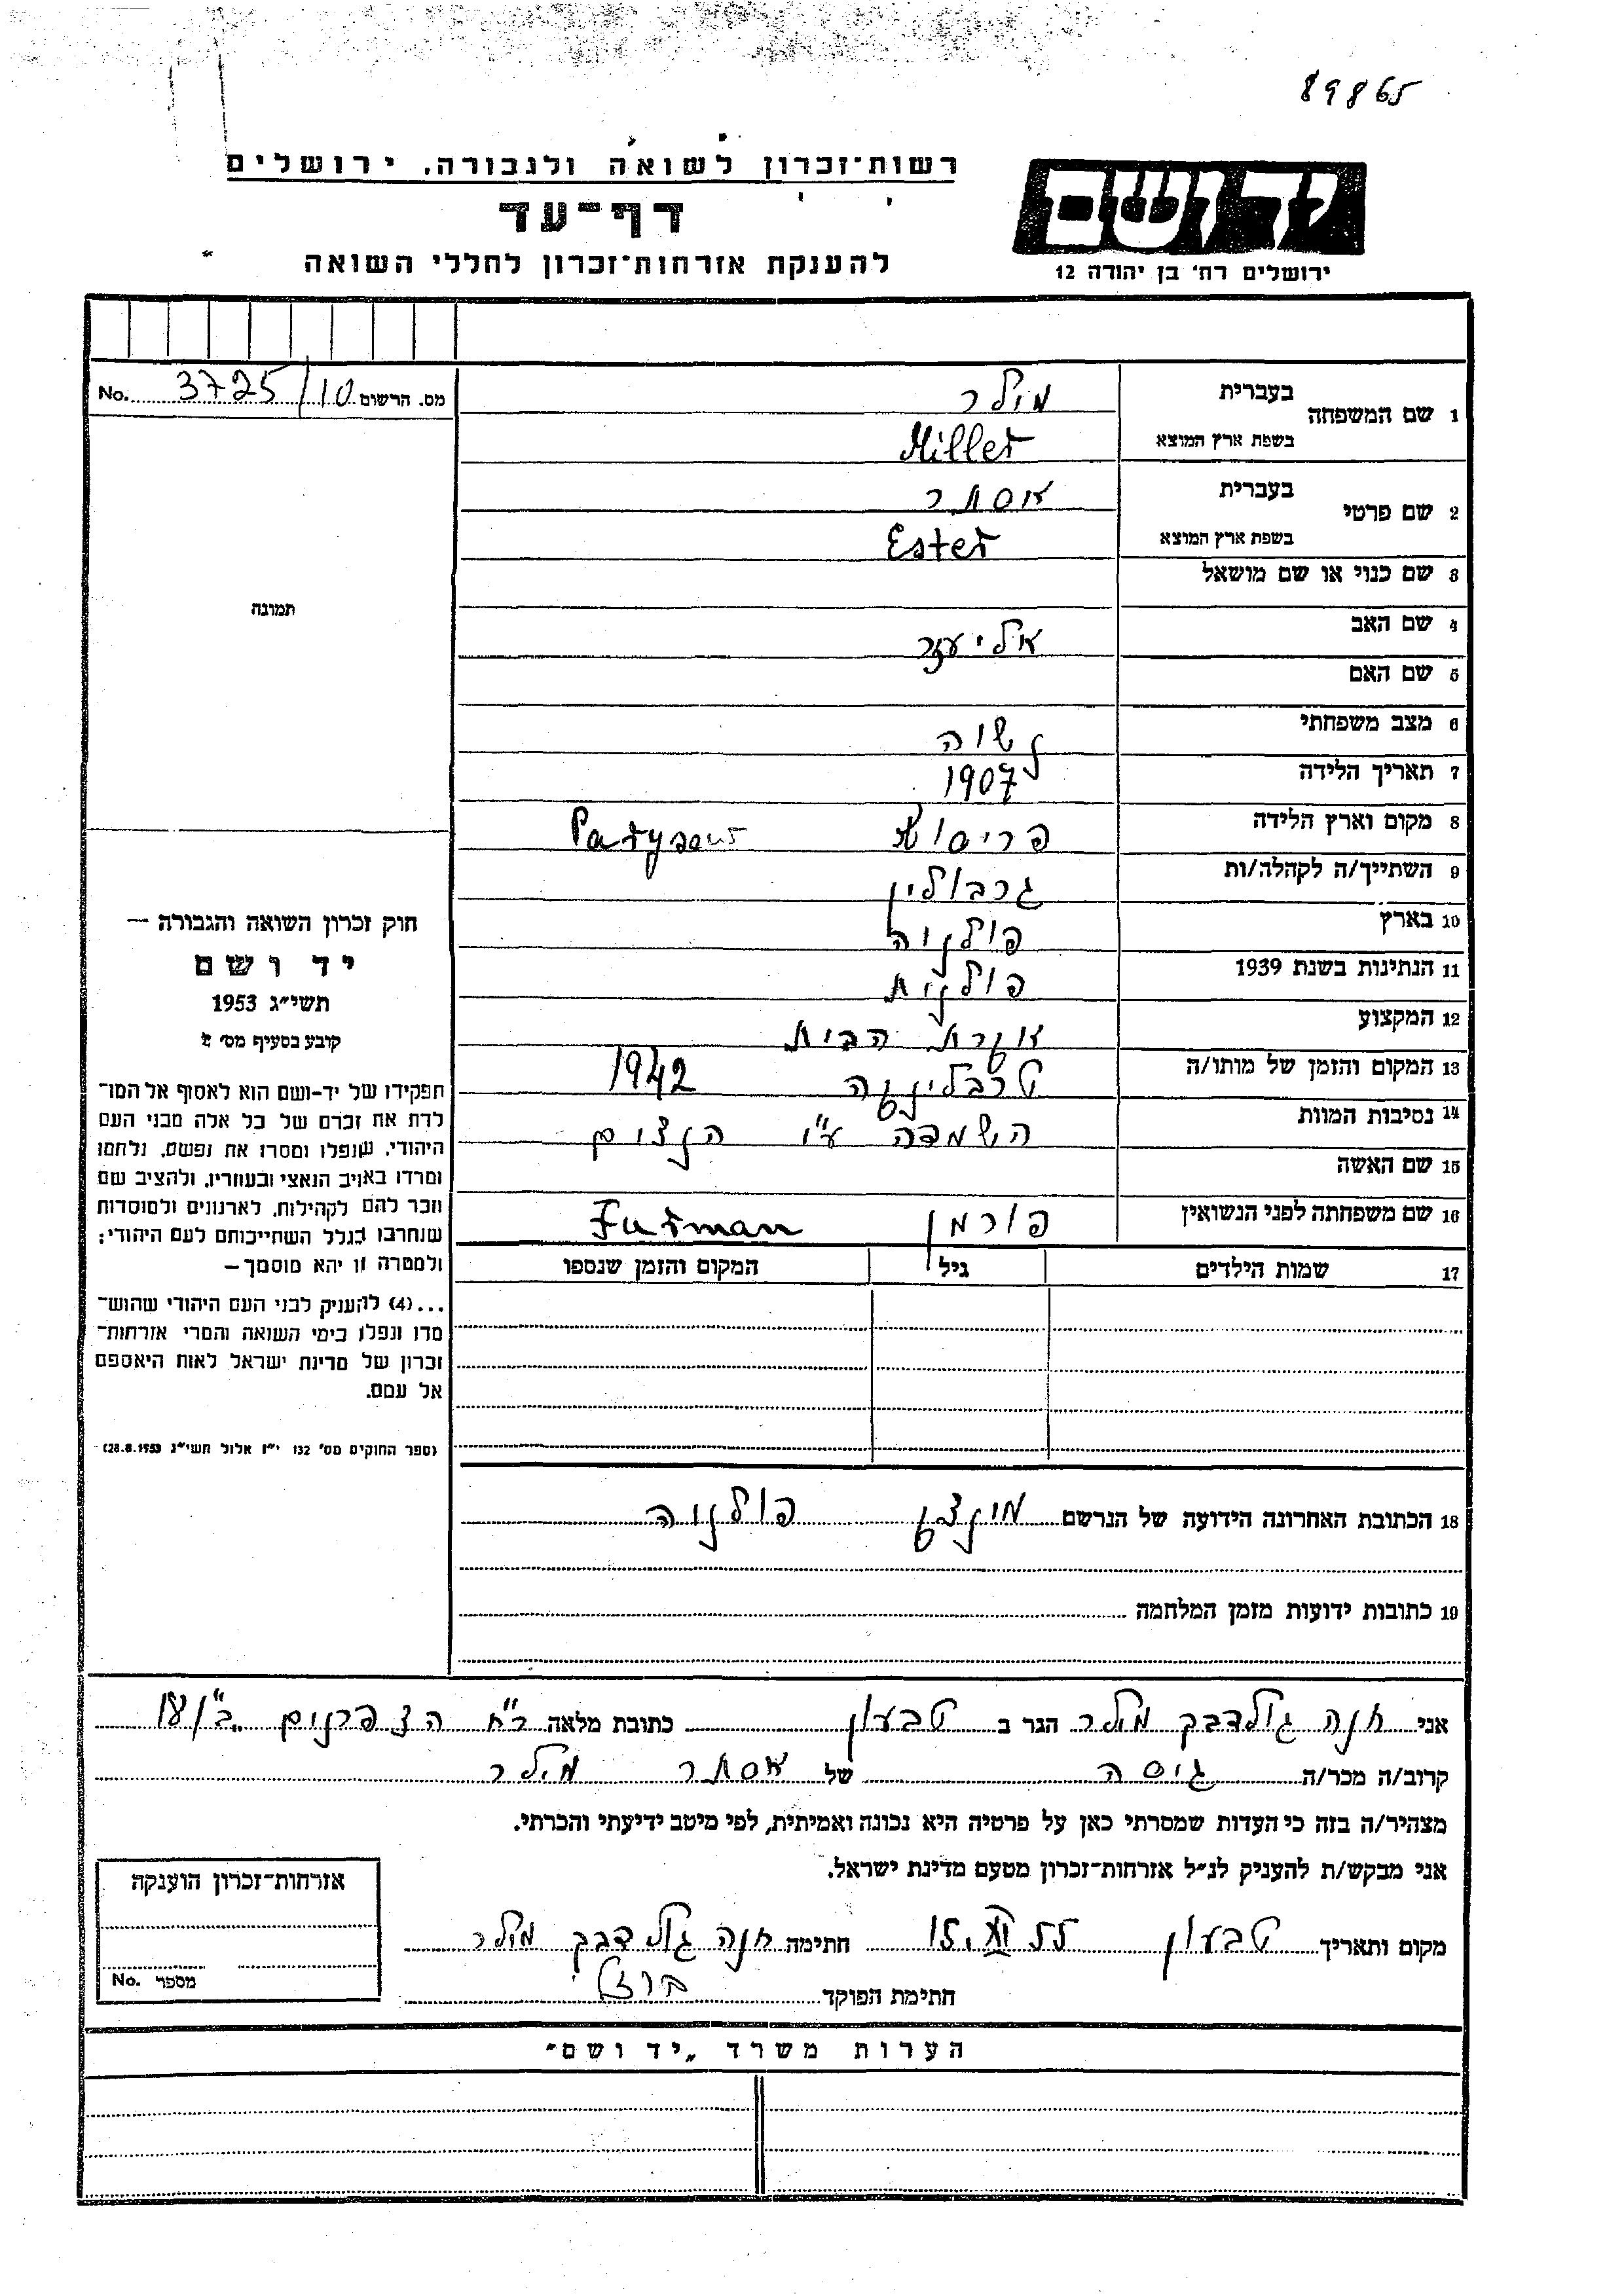 89865
רשות־זכרון לשואה ולגבורה, ירושלים
יד ושם
דף־עד
להענקת אזרחות־זכרון לחללי השואה
ירושלים רח' בן יהודה 12
מס. הרשום 3725/10 No.
1 שם המשפחה בעברית מילר
בשפת ארץ המוצא Miller
2 שם פרטי בעברית אסתר
בשפת ארץ המוצא Ester
3 שם כנוי או שם מושאל
תמונה
4 שם האב אליעזר
5 שם האם
6 מצב משפחתי נשוה
7 תאריך הלידה 1907
8 מקום וארץ הלידה Parysow
9 השתייך/ה לקהלה/ות גרבולין
10 בארץ פולניה
11 הנתינות בשנת 1939 פולנית
12 המקצוע עקרת הבית
13 המקום והזמן של מותו/ה טרבלינקה 1942
14 נסיבות המוות השמדה ע"י הנצים
15 שם האשה
16 שם משפחתה לפני הנשואין פורמן Furman
17 שמות הילדים גיל המקום והזמן שנספו
חוק זכרון השואה והגבורה —
יד ושם
תשי"ג 1953
קובע בסעיף מס' 2
תפקידו של יד-ושם הוא לאסוף אל המו־
לדת את זכרם של כל אלה מבני העם
היהודי, שנפלו ומסרו את נפשם, נלחמו
ומרדו באויב הנאצי ובעוזריו, ולהציב שם
וזכר להם לקהילות, לארגונים ולמוסדות
שנחרבו בגלל השתייכותם לעם היהודי;
ולמטרה זו יהא מוסמך —
...(4) להעניק לבני העם היהודי שהוש־
מדו ונפלו בימי השואה והמרי אזרחות־
זכרון של מדינת ישראל לאות היאספם
אל עמם.
(ספר החוקים מס' 132 י"ז אלול תשי"ג 28.8.1953)
18 הכתובת האחרונה הידועה של הנרשם פולניה
19 כתובות ידועות מזמן המלחמה
אני חנה גולדברג מילר הגר ב טבעון כתובת מלאה רח הצפרנים
קרוב/ה מכר/ה גיסה של אסתר מילר
מצהיר/ה בזה כי העדות שמסרתי כאן על פרטיה היא נכונה ואמיתית, לפי מיטב ידיעתי והכרתי.
אני מבקש/ת להעניק לנ"ל אזרחות־זכרון מטעם מדינת ישראל.
מקום ותאריך טבעון 15.XI 55 חתימה חנה גולדברג מילר
חתימת הפוקד
אזרחות־זכרון הוענקה
מספר No.
הערות משרד „יד ושם"